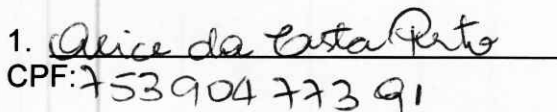 1. Alice da Costa Porto
CPF: 753904773 91